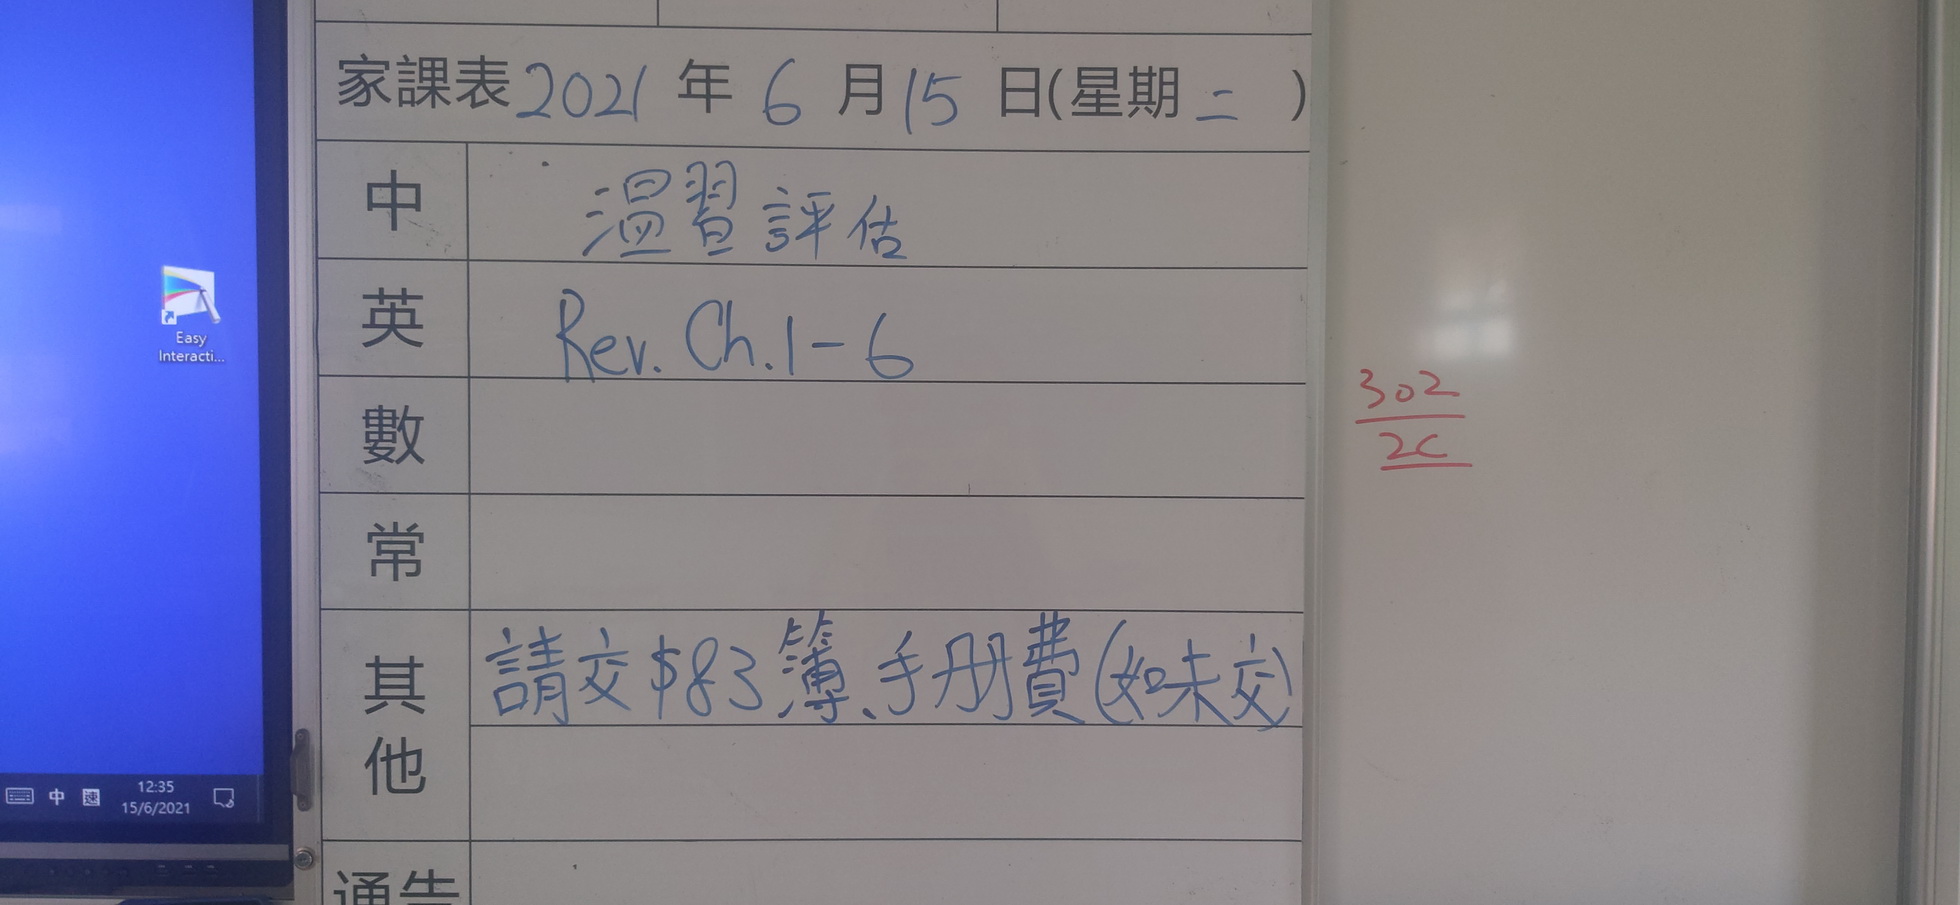 家課表 2021 年 6 月 15 日(星期二)
中 溫習評估
英 Rev. Ch.1-6
數
常
其他 請交$83簿、手册費(如未交)
通告
Easy
Interacti...
中 速 12:35
15/6/2021
302
2C